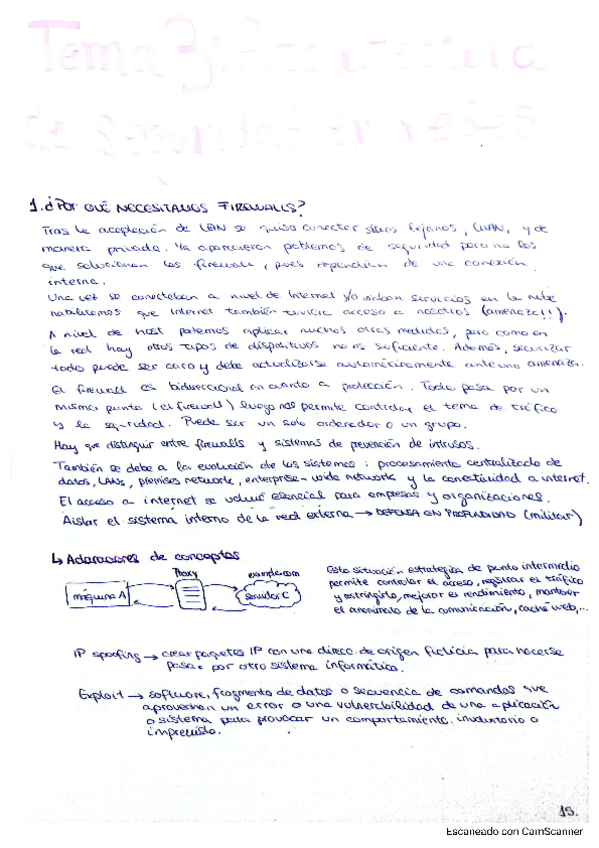 Tema 3: Arquitectura
de seguridad en redes
1. ¿POR QUÉ NECESITAMOS FIREWALLS?
Tras la aceptación de LAN se quiso conectar sitios lejanos, WAN, y de
manera privada. Ya aparecieron problemas de seguridad pero no los
que solucionan los firewalls, pues dependían de una conexión
interna.
Una vez se conectaban a nivel de Internet y/o servicios en la nube
Internet también tuviera acceso a nosotros (amenaza!!).
A nivel de host podemos aplicar muchas otras medidas, pero como en
la red hay otros tipos de dispositivos no es suficiente. Además, securizar
todo puede ser caro y debe actualizarse automáticamente ante una amenaza.
El firewall es bidireccional en cuanto a protección. Todo pasa por un
mismo punto (el firewall) luego nos permite controlar el tema de tráfico
y la seguridad. Puede ser un solo ordenador o un grupo.
Hay que distinguir entre firewalls y sistemas de prevención de intrusos.
También se debe a la evolución de los sistemas: procesamiento centralizado de
datos, LANs, premises network, enterprise-wide networks y la conectividad a internet.
El acceso a internet se volvió esencial para empresas y organizaciones.
Aislar el sistema interno de la red externa → DEFENSA EN PROFUNDIDAD (militar)
↳ Aclaraciones de conceptos
Proxy
example.com
máquina A
servidor C
Esta situación estratégica de punto intermedio
permite controlar el acceso, registrar el tráfico
y restringirlo, mejorar el rendimiento, mantener
el anonimato de la comunicación, caché web,...
IP spoofing → crear paquetes IP con una direcc. de origen ficticia para hacerse
pasar por otro sistema informático.
Exploit → software, fragmento de datos o secuencia de comandos que
aprovechen un error o una vulnerabilidad de una aplicación
o sistema para provocar un comportamiento involuntario o
imprevisto.
15.
Escaneado con CamScanner